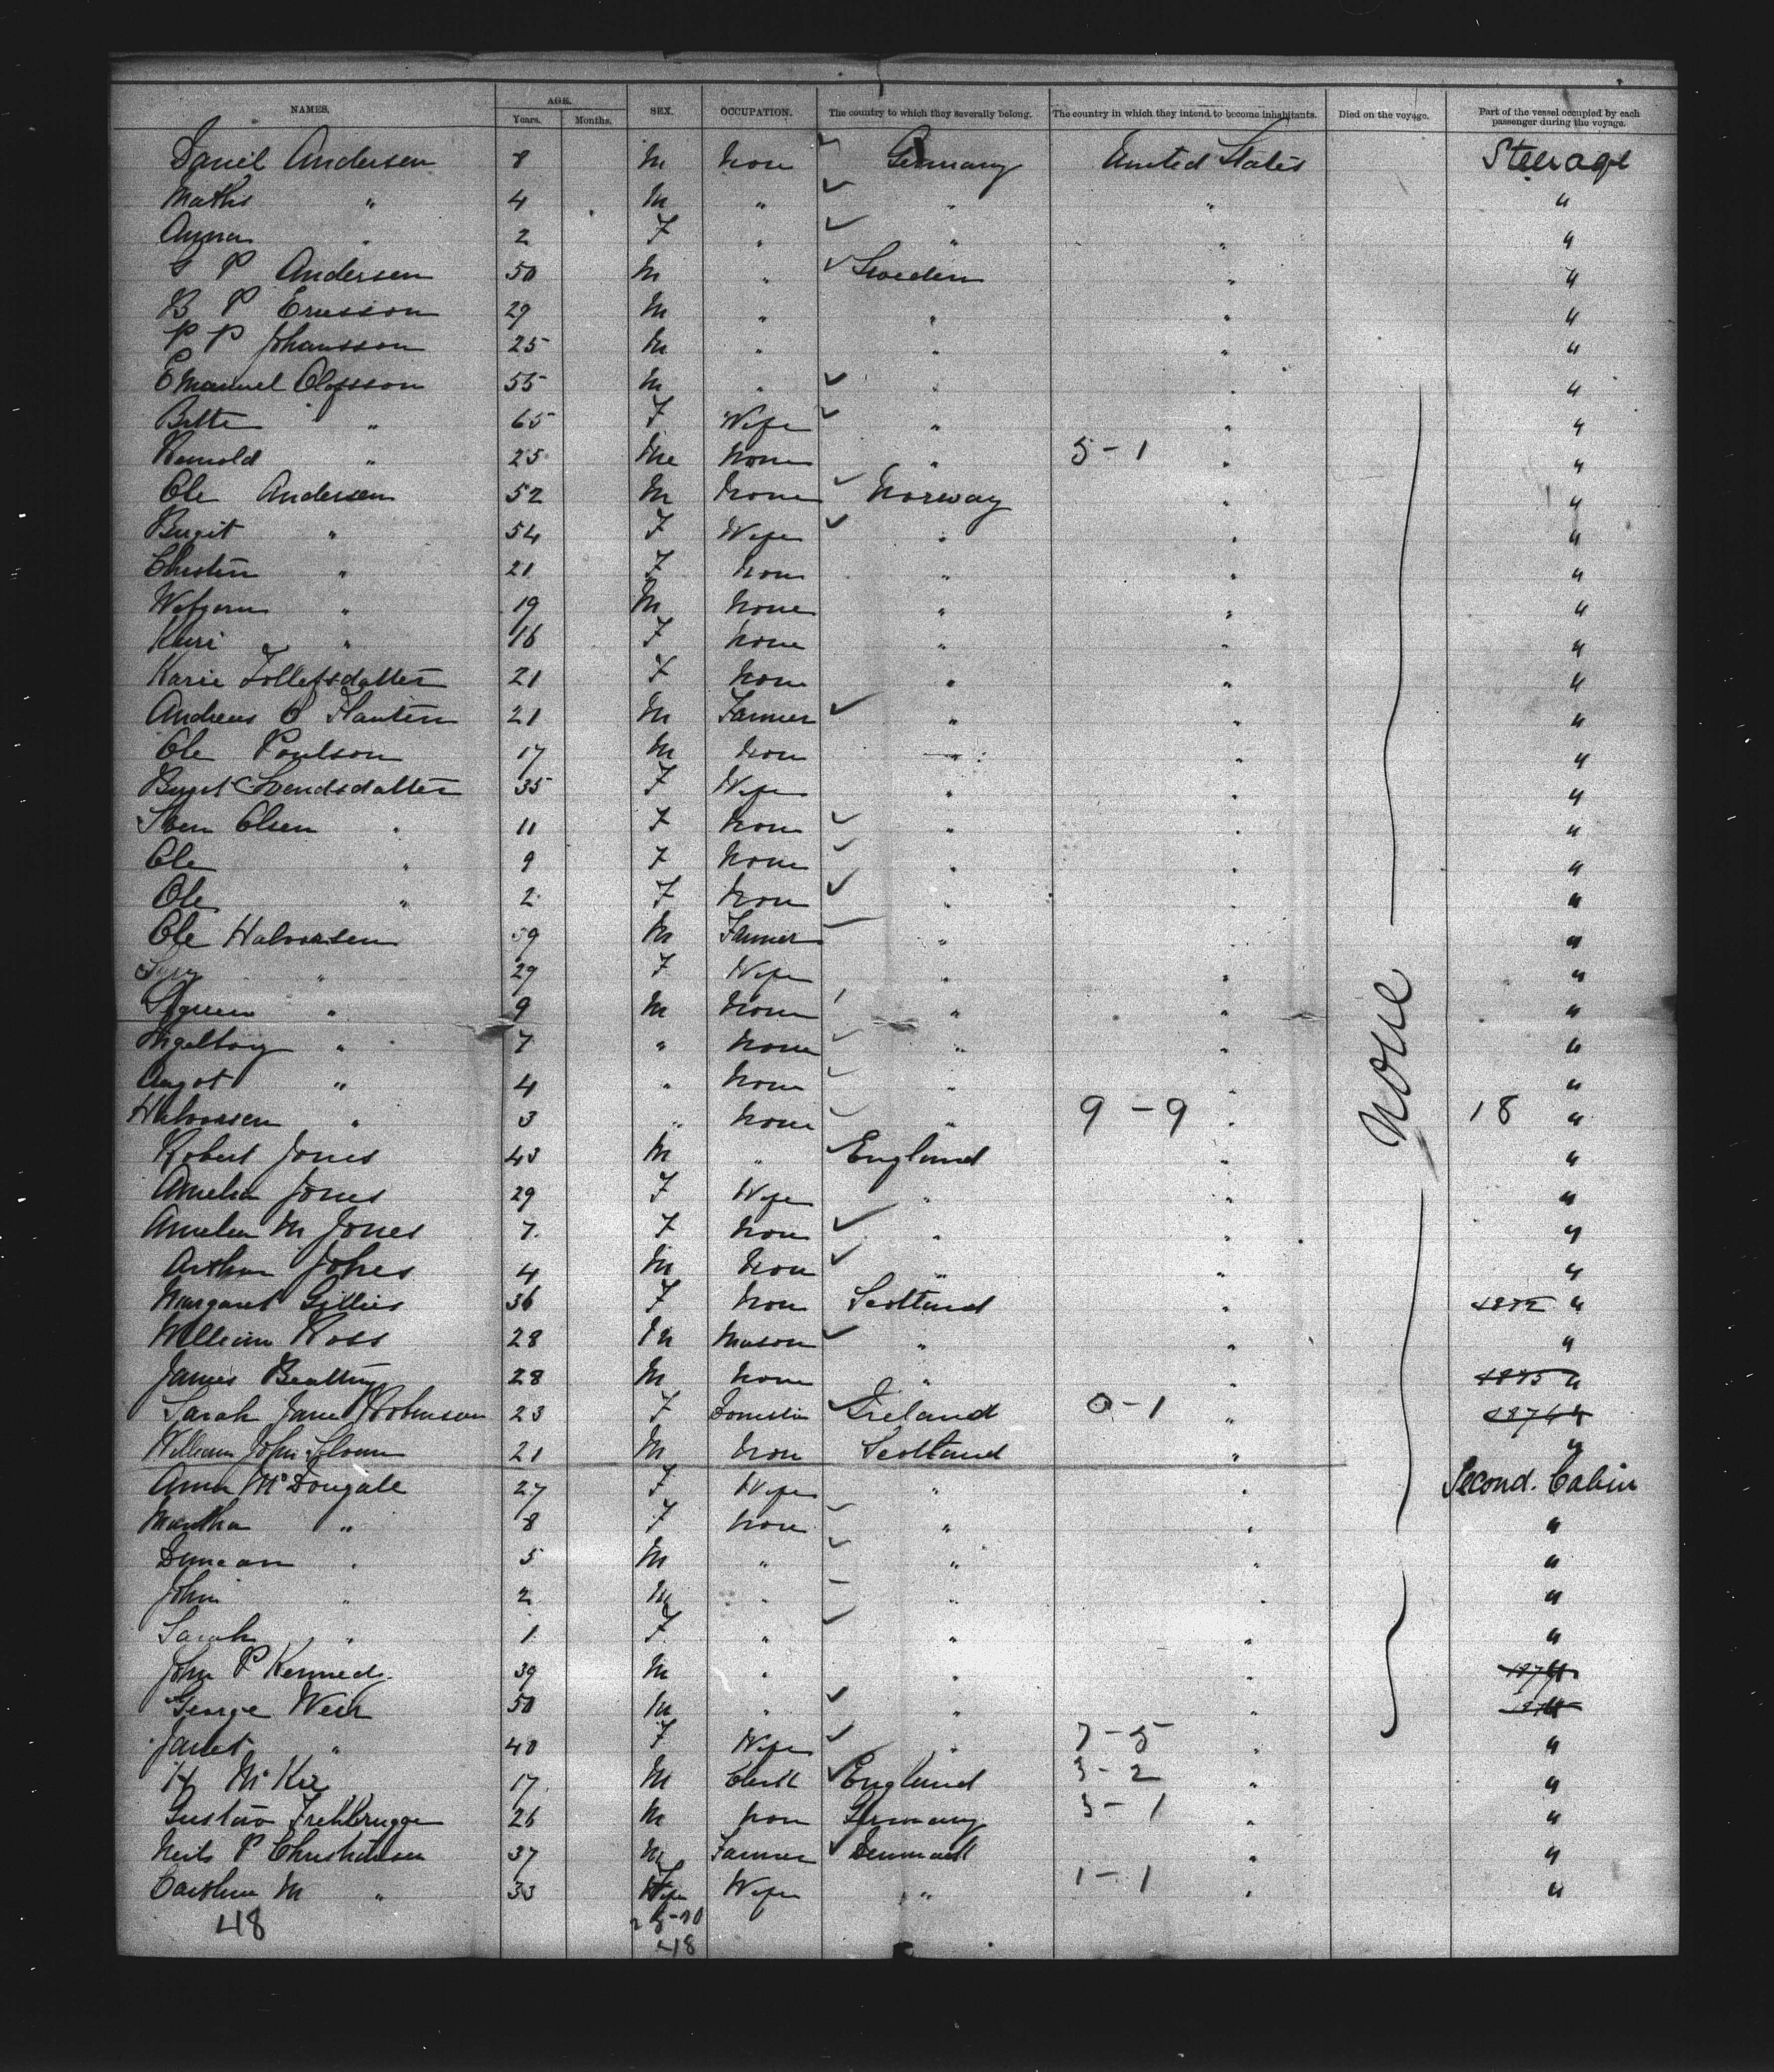 NAMES. AGE. SEX. OCCUPATION. The country to which they severally belong. The country in which they intend to become inhabitants. Died on the voyage. Part of the vessel occupied by each passenger during the voyage.
Years. Months.
Daniel Andersen 8 M None Germany United States Steerage
Mathis " 4 M " " " "
Anna " 2 F " " " "
P Andersen 50 M " Sweden " "
B P Ericsson 29 M " " " "
P P Johansson 25 M " " " "
Emanuel Olofsson 55 M " " " "
Bitte " 65 F Wife " " "
" 25 Me None " 5-1 " "
Ole Andersen 52 M None Norway " "
Birgit " 54 F Wife " " "
Christin " 21 F Non " " "
" 19 M None " " "
Kari " 16 F None " " "
Karie Tollefsdatter 21 F Non " " "
Andreas O 21 M Farmer " " "
Ole Poulson 17 M Non " " "
Svendsdatter 35 F Wife " " "
Sven Olsen " 11 F None " " "
Ole " 9 F None " " "
Ole " 2 F None " " "
Ole Halvorsen 59 M Farmer " " "
" 29 F Wife " " "
" 9 M None " " "
Ingelborg " 7 " None " " "
Angot " 4 " None " " "
Halvorsen " 3 " None " 9-9 " 18 "
Robert Jones 43 M " England " "
Amelia Jones 29 F Wife " " "
Amelia M Jones 7 F Non " " "
Arthur Jones 4 M Non " " "
Margaret Gillies 36 F Non Scotland " "
William Ross 28 M Mason " " "
James Beatty 28 M None " " "
Sarah Jane Robinson 23 F Domestic Ireland 0-1 " "
William John 21 M Non Scotland " "
Anna McDougale 27 F Wife " " Second. Cabin
Martha " 8 F None " " "
Duncan " 5 M " " " "
John " 2 M " " " "
Sarah " 1 F " " " "
John P Kenned 39 M " " " "
George Weir 50 M " " " "
Janet " 40 F Wife " 7-5 " "
H McKie 17 M Clerk England 3-2 " "
Gustav 26 M Non Germany 3-1 " "
Neils P Christiansen 37 M Farmer Denmark " "
M " 33 F Wife " 1-1 " "
None
48
48